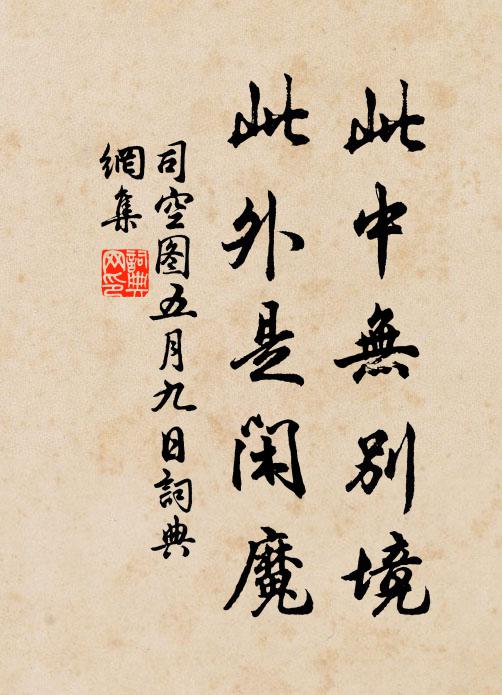 此中無別境
此外是閑魔
司空图五月九日詞典
網集
詞典
网印